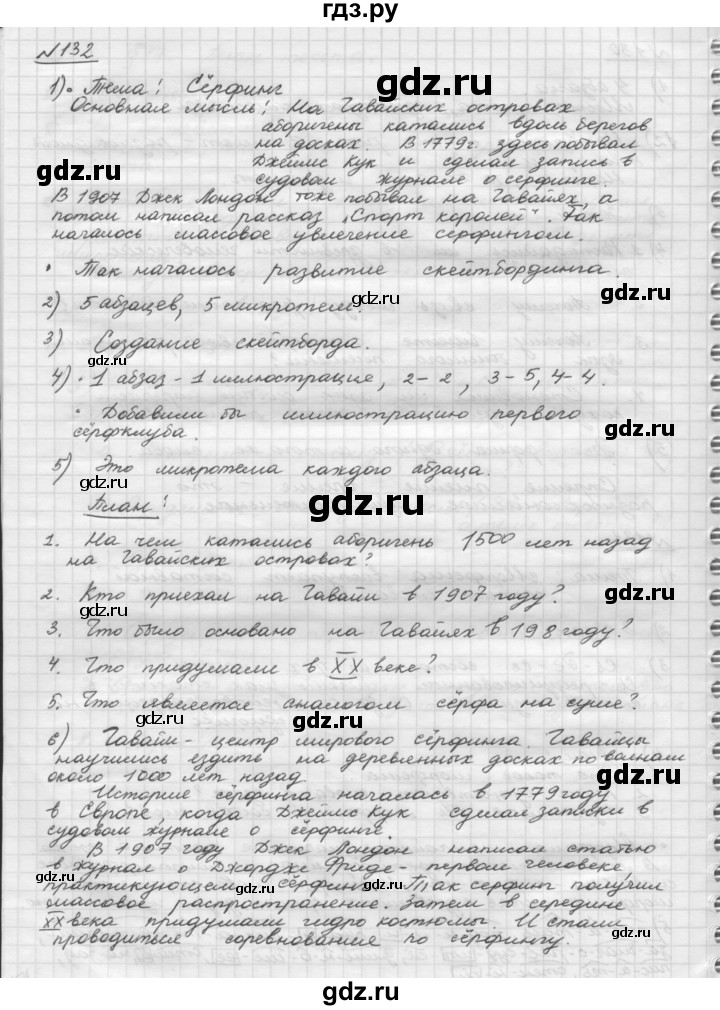 гдз.ру
№132
1)• Тема: Сёрфинг
gdz.ru
Основная мысль: На Гавайских островах
аборигены катались вдоль берегов
на досках. В 1779г. здесь побывал
gdz.ru
Джеймс Кук и сделал запись в
судовом журнале о сёрфинге.
gdz.ru
В 1907 Джек Лондон тоже побывал на Гавайях, а
потом написал рассказ „Спорт королей". Так
началось массовое увлечение сёрфингом.
gdz.ru
• Так началось развитие скейтбординга.
gdz.ru
2) 5 абзацев, 5 микротем.
gdz.ru
3) Создание скейтборда.
gdz.ru
4) • 1 абзаз - 1 иллюстрация, 2 - 2, 3 - 5, 4 - 4.
• Добавили бы иллюстрацию первого
сёрфклуба.
gdz.ru
gdz.ru
5) Это микротема каждого абзаца.
План:
gdz.ru
gdz.ru
1. На чем катались аборигень 1500 лет назад
на Гавайских островах?
gdz.ru
2. Кто приехал на Гавайи в 1907 году?
gdz.ru
gdz.ru
3. Что было основано на Гавайях в 198 году?
4. Что придумали в XX веке?
gdz.ru
5. Что является аналогом сёрфа на суше?
gdz.ru
gdz.ru
6) Гавайи - центр мирового сёрфинга. Гавайцы
научились ездить на деревленных досках по волнам
около 1000 лет назад.
gdz.ru
gdz.ru
История сёрфинга началась в 1779 году
в Европе, когда Джеймс Кук сделал записки в
судовом журнале о сёрфинге.
gdz.ru
В 1907 году Джек Лондон написал статью
в журнал о Джордже Фриде - первом человеке,
gdz.ru
практикующем сёрфинг. Так серфинг получил
gdz.ru
массовое распространение. Затем в середине
XX века придумали гидро костюмы. И стали
gdz.ru
проводиться соревнования по сёрфингу.
gdz.ru
гдз.ру